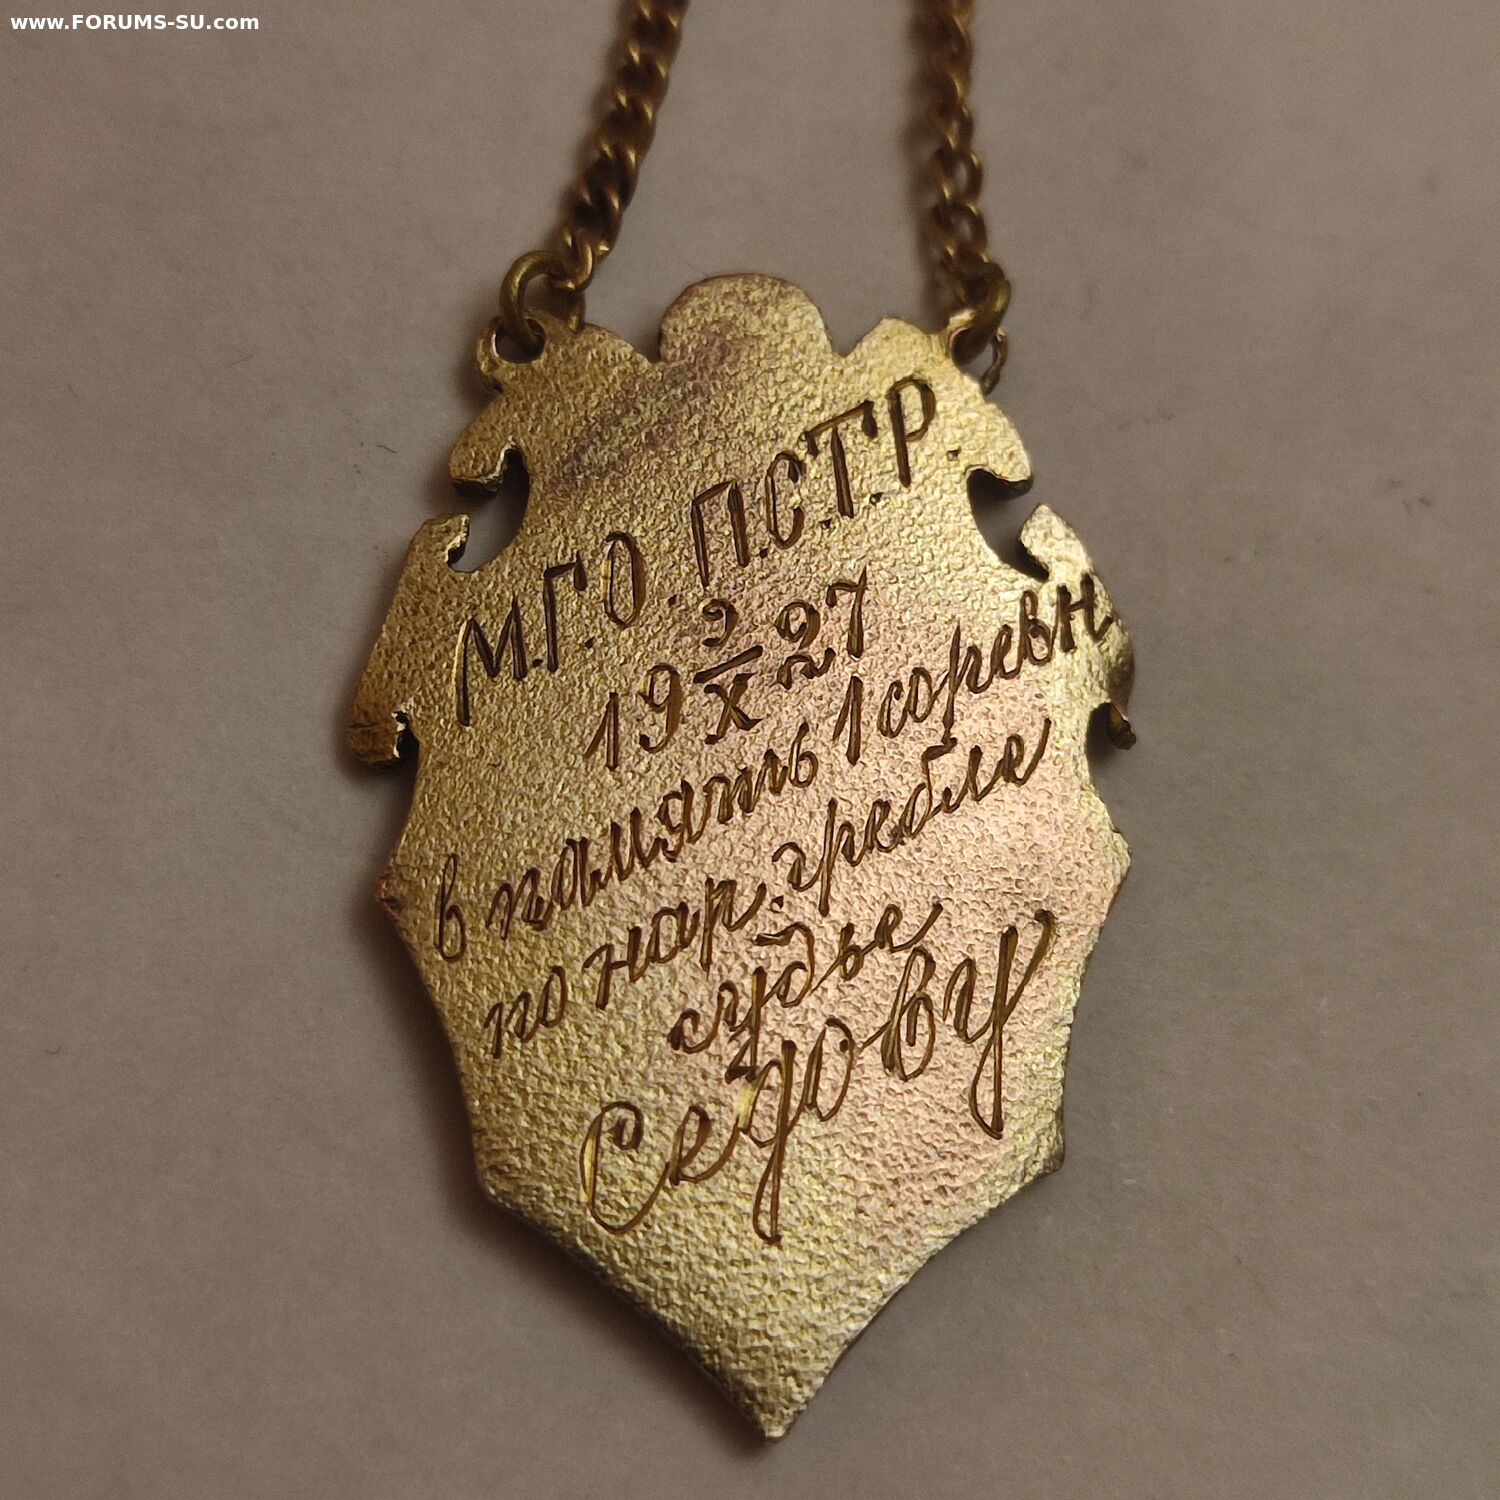 www.FORUMS-SU.com
М.Г.О. П.С.Т.Р.
19 9/X 27
в память 1 соревн
по нар. гребле
судье
Седову